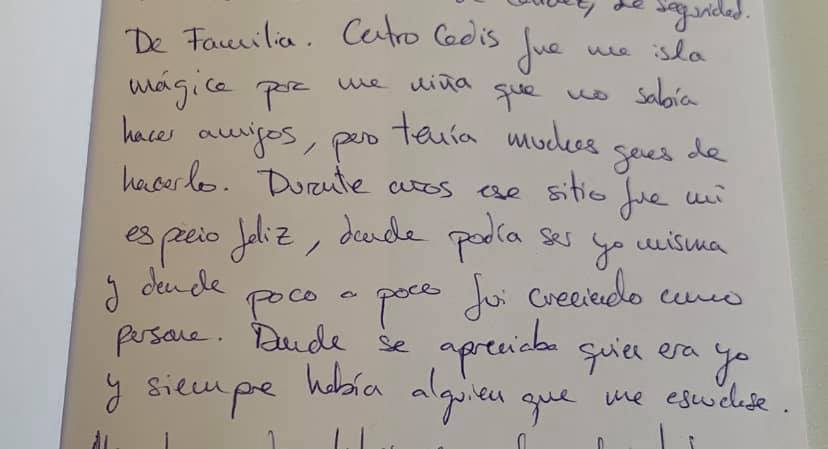 de seguridad.
De Familia. Centro Cedis fue una isla
mágica para una niña que no sabía
hacer amigos, pero tenía muchas ganas de
hacerlo. Durante años ese sitio fue mi
espacio feliz, donde podía ser yo misma
y donde poco a poco fui creciendo como
persona. Donde se apreciaba quien era yo
y siempre había alguien que me escuchase.